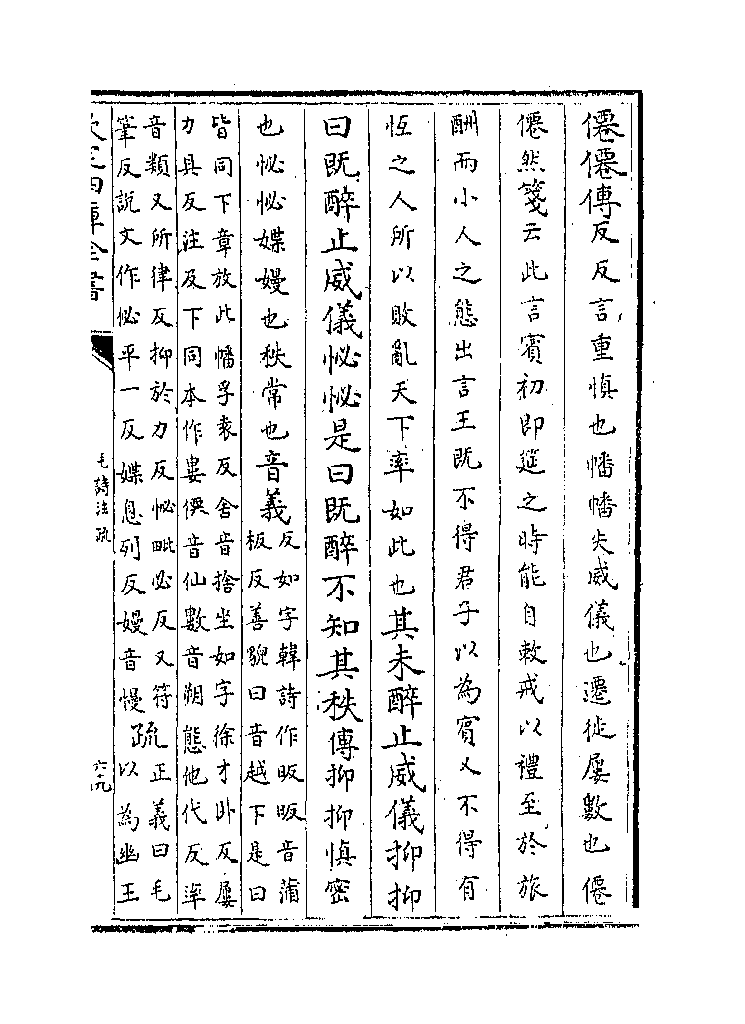 僊僊傳反反言重慎也幡幡失威儀也遷徙屢數也僊
僊然箋云此言賓初即筵之時能自敕戒以禮至於旅
酬而小人之態出言王既不得君子以為賓又不得有
恆之人所以敗亂天下率如此也其未醉止威儀抑抑
曰既醉止威儀怭怭是曰既醉不知其秩傳抑抑慎密
也怭怭媟嫚也秩常也音義反如字韓詩作昄昄音蒲
板反善貌曰音越下是曰
皆同下章放此幡孚袁反舍音捨坐如字徐才卧反屢
力具反注及下同本作婁僊音仙數音朔態他代反率
音類又所律反抑於力反怭毗必反又符
筆反說文作佖平一反媟息列反嫚音慢疏正義曰毛
以為幽王
欽定四庫全書
毛詩注疏
六十九